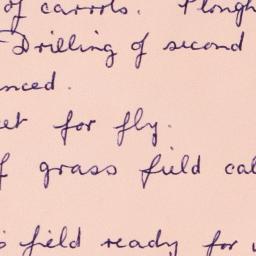 of carrots. Plough
Drilling of second
nced.
et for fly.
f grass field cal
s field ready for